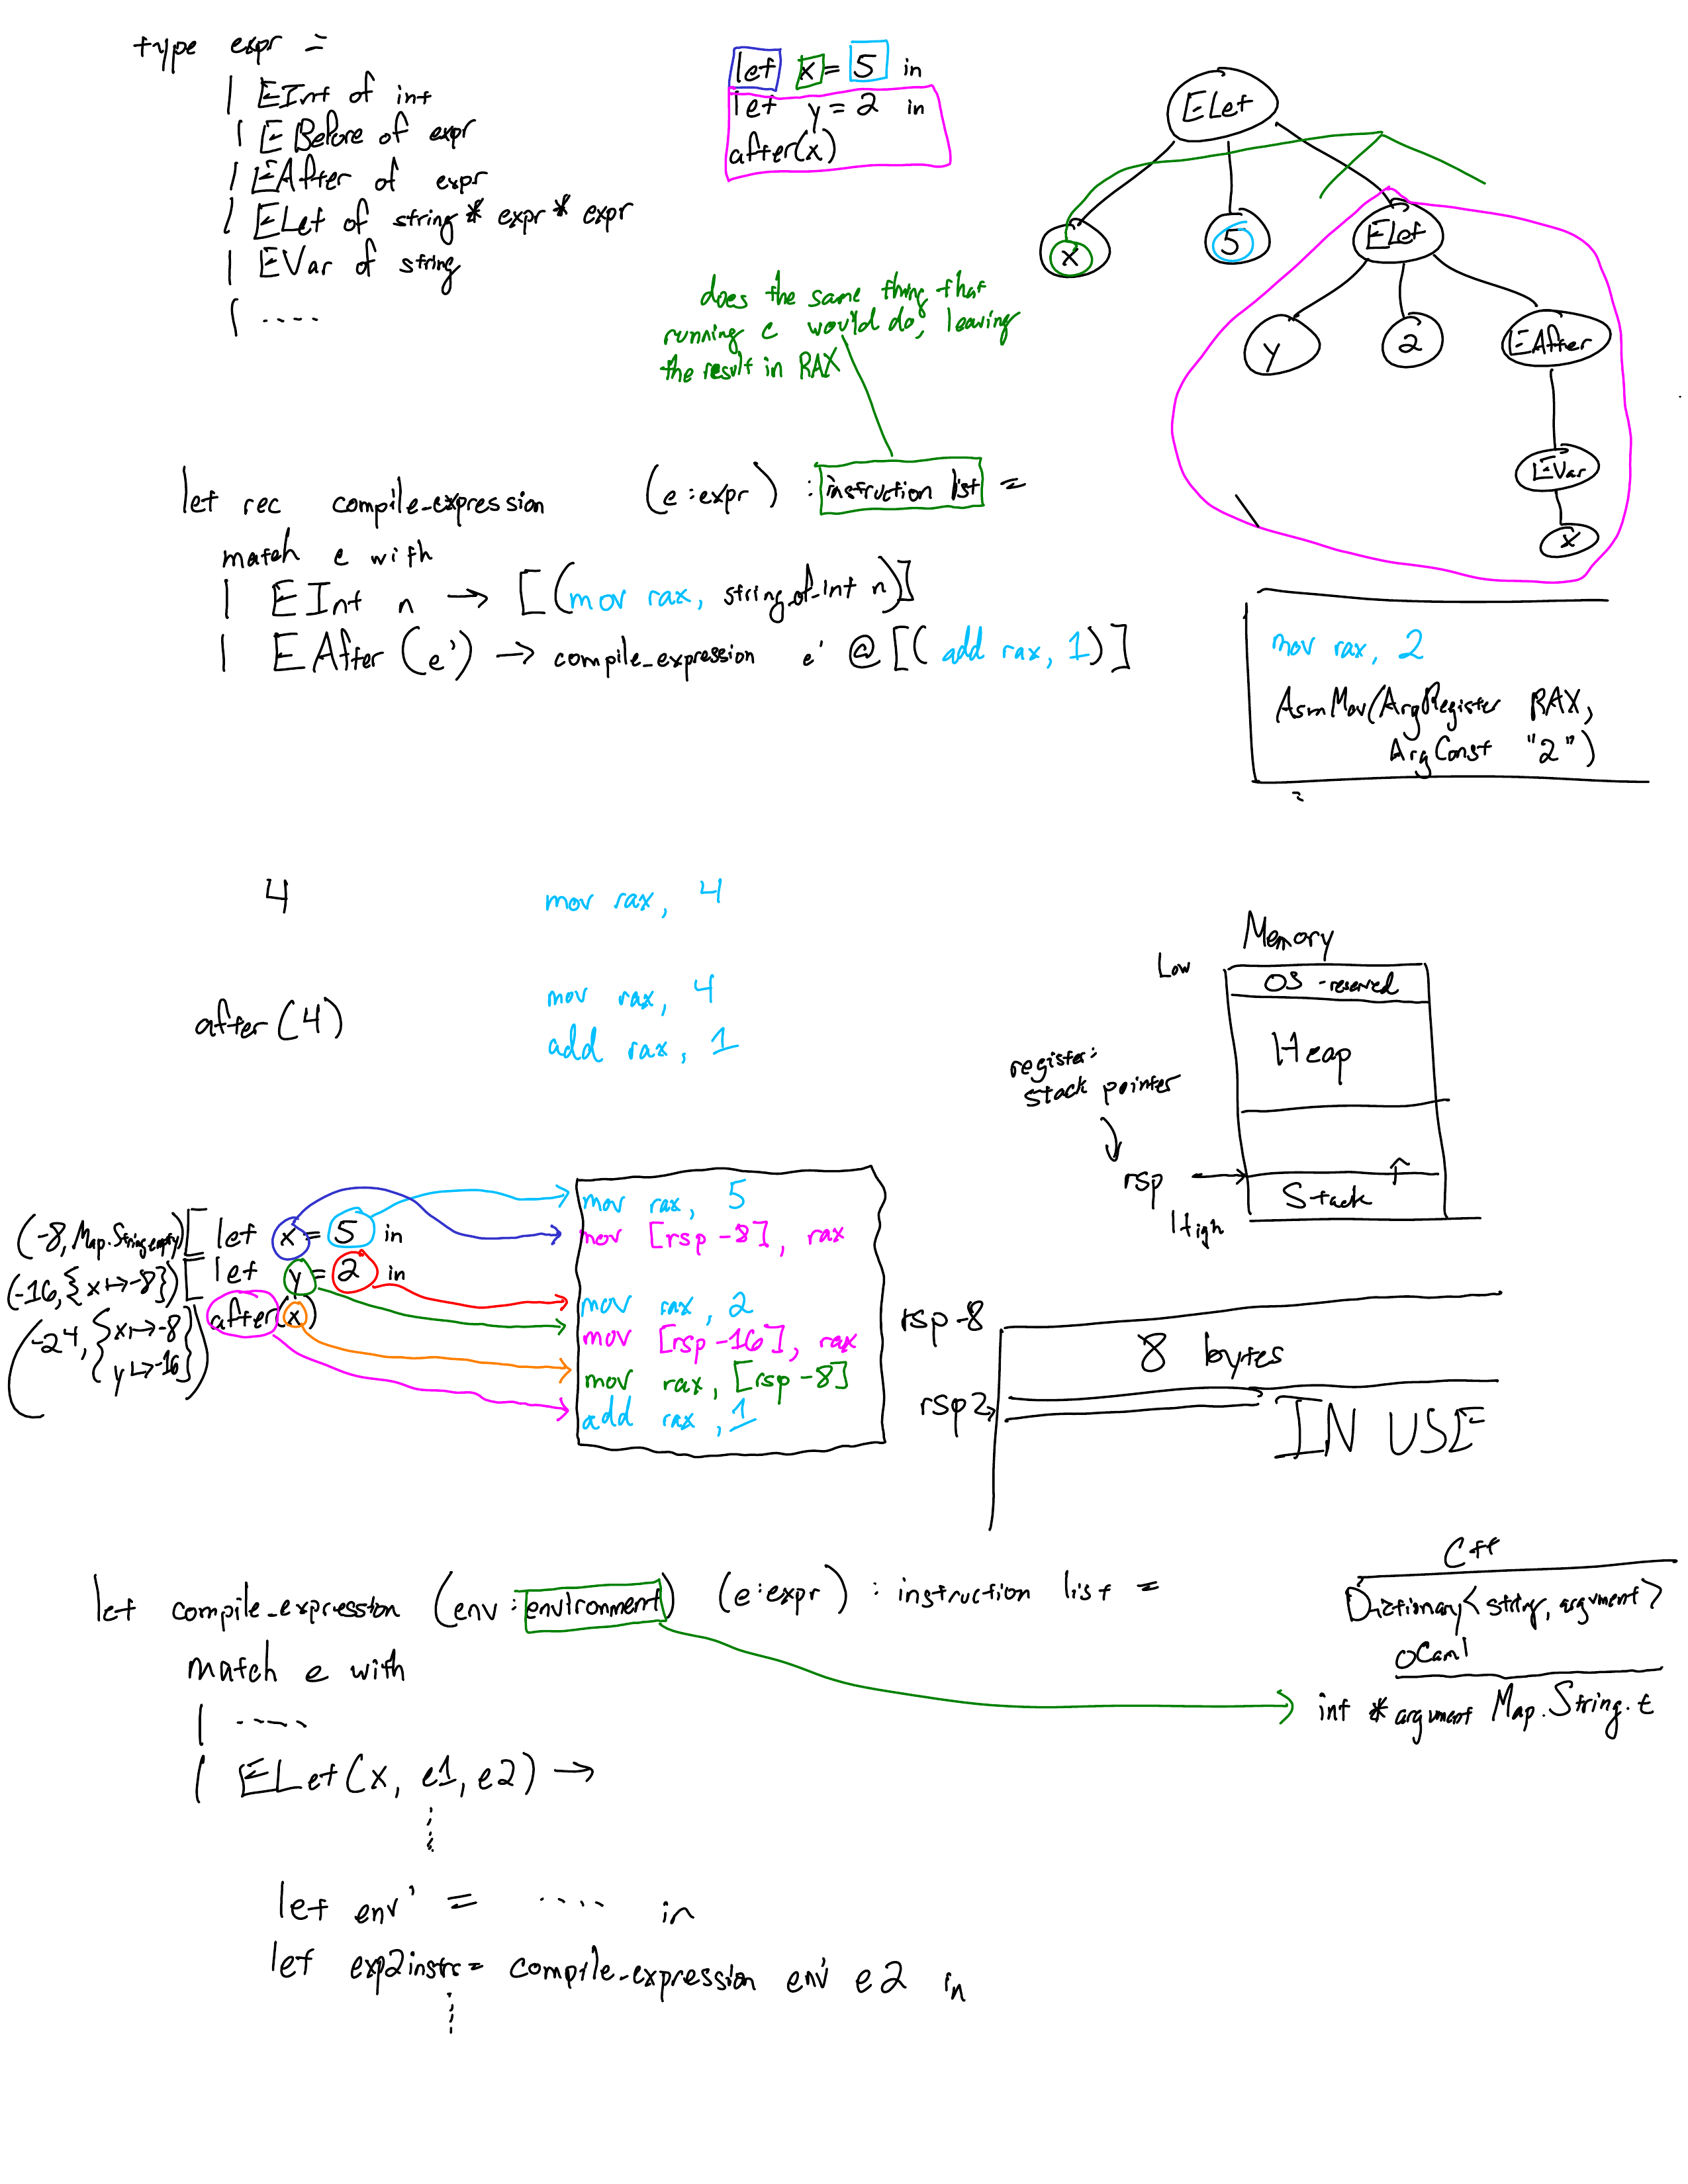 type expr =
| EInt of int
| EBefore of expr
| EAfter of expr
| ELet of string * expr * expr
| EVar of string
| ....
let x = 5 in
let y = 2 in
after(x)
ELet
x
5
ELet
y
2
EAfter
EVar
x
does the same thing that
running e would do, leaving
the result in RAX
let rec compile_expression (e:expr) : instruction list =
match e with
| EInt n → [(mov rax, string_of_int n)]
| EAfter(e') → compile_expression e' @ [(add rax, 1)]
mov rax, 2
AsmMov(ArgRegister RAX,
ArgConst "2")
4
mov rax, 4
after(4)
mov rax, 4
add rax, 1
Memory
Low
OS-reserved
Heap
register:
stack pointer
rsp
Stack
High
(-8, Map.String.empty) [ let x = 5 in
(-16, {x ↦ -8}) [ let y = 2 in
after(x)
(-24, {x ↦ -8
y ↦ -16})
mov rax, 5
mov [rsp-8], rax
mov rax, 2
mov [rsp-16], rax
mov rax, [rsp-8]
add rax, 1
rsp-8
8 bytes
rsp2
IN USE
let compile_expression (env:environment) (e:expr) : instruction list =
match e with
| ....
| ELet(x, e1, e2) →
let env' = .... in
let exp2instrs = compile_expression env' e2 in
C++
Dictionary<string, argument>
OCaml
int * argument Map.String.t